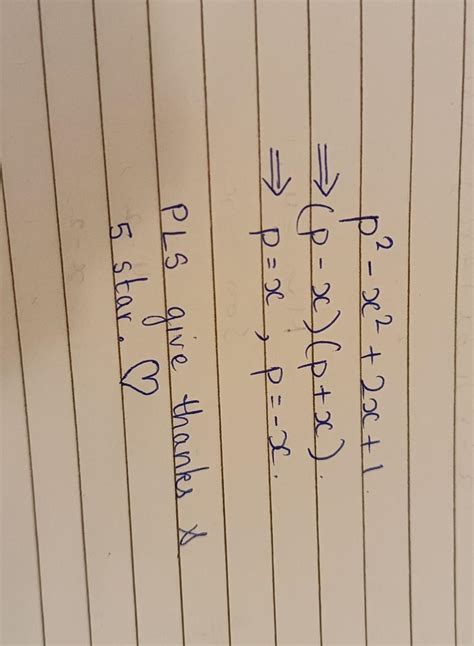 p² - x² + 2x + 1
⇒ (p - x)(p + x).
⇒ p = x , p = -x.
PLS give thanks &
5 star. ♡